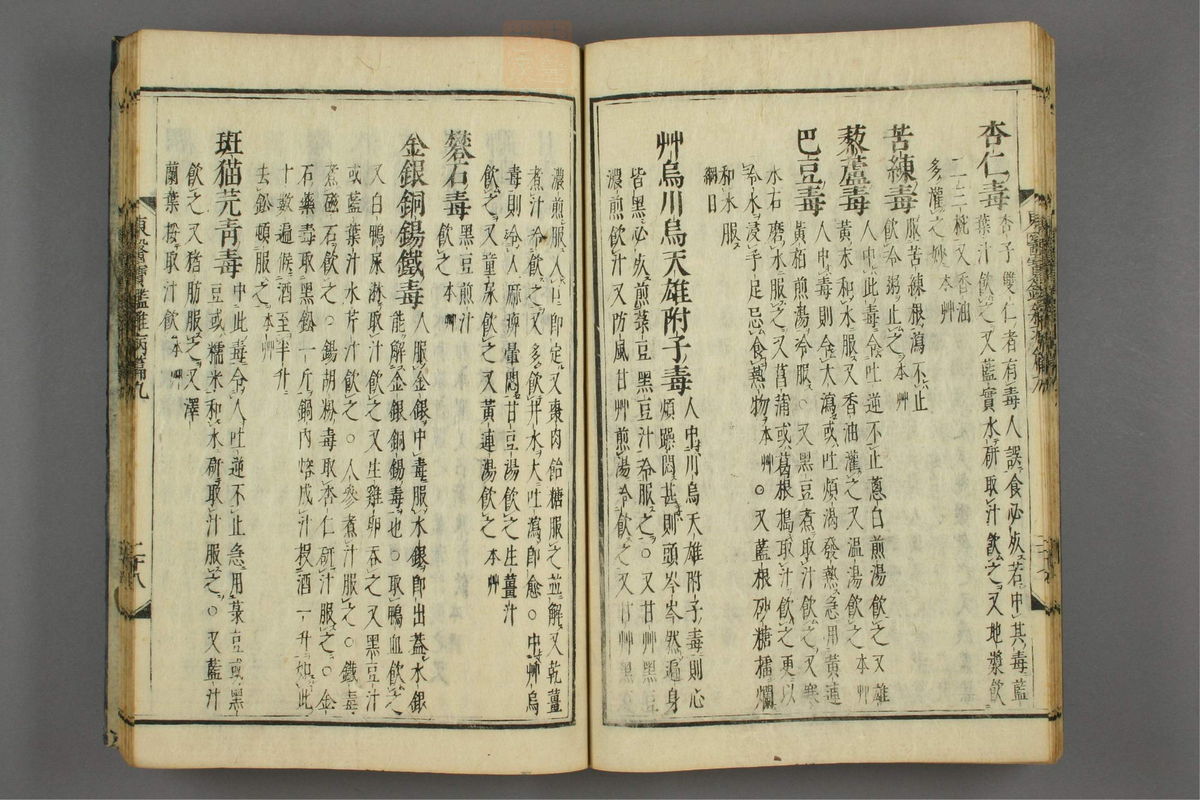 杏仁毒 杏子雙仁者有毒人誤食必疚若中其毒藍
葉汁飲之又藍實水研取汁飲之又地漿飲
二三椀又香油
多灌之妙本艸
苦練毒 服苦練根瀉不止
飲冷粥止之本艸
藜蘆毒 人中此毒令吐逆不止蔥白煎湯飲之又雄
黃末和水服又香油灌之又溫湯飲之本艸
巴豆毒 人中毒則令大瀉或吐煩渴發熱急用黃連
黃栢煎湯冷服○又黑豆煮取汁飲之又寒
水石磨水服之又菖蒲或葛根搗取汁飲之更以
冷水浸手足忌食熱物本艸○又藍根砂糖擂爛
和水服
綱目
艸烏川烏天雄附子毒 人中川烏天雄附子毒則心
煩躁悶甚則頭岑岑然遍身
皆黑必疚煎菉豆黑豆汁冷服之○又甘艸黑豆
濃煎飲汁又防風甘艸煎湯冷飲之又甘艸黑豆
濃煎服入口卽定又棗肉飴糖服之並解又乾薑
煮汁冷飲之又多飲井水大吐瀉卽愈○中艸烏
毒則令人麻痺暈悶甘豆湯飲之生薑汁
飲之又童尿飲之又黃連湯飲之本艸
礬石毒 黑豆煎汁
飲之本艸
金銀銅錫鐵毒 人服金銀中毒服水銀卽出蓋水銀
能解金銀銅錫毒也○取鴨血飲之
又白鴨屎淋取汁飲之又生雞卵吞之又黑豆汁
或藍葉汁水芹汁飲之○人參煮汁服之○鐵毒
煮磁石飲之○錫胡粉毒取杏仁研汁服之○金
石藥毒取黑鈆一斤鍋內熔成汁投酒一升如此
十數遍候酒至半升
去鈆頓服之本艸
斑猫芫靑毒 中此毒令人吐逆不止急用菉豆或黑
豆或糯米和水硏取汁服之○又藍汁
飮之又猪肪服之又澤
蘭葉挼取汁飮本艸
東醫寶鑑雜病篇九
二十八